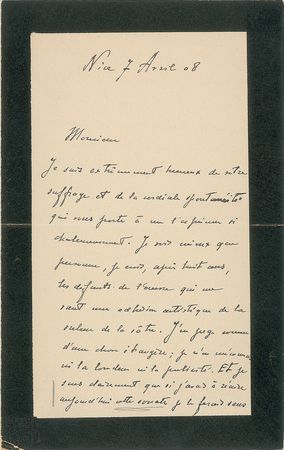 Nice 7 Avril 08
Monsieur
Je suis extrêmement heureux de votre
suffrage et de la cordiale spontanéité
qui vous porte à me l'exprimer si
chaleureusement. Je sais mieux que
personne, je crois, après huit ans,
les défauts de l'œuvre qui me
vaut une adhésion artistique de la
valeur de la vôtre. J'en juge comme
d'une chose étrangère; je n'en méconnais
ni la lourdeur ni la
Et je
sens clairement que si j'avais à écrire
aujourd'hui cette sonate je le ferais sans